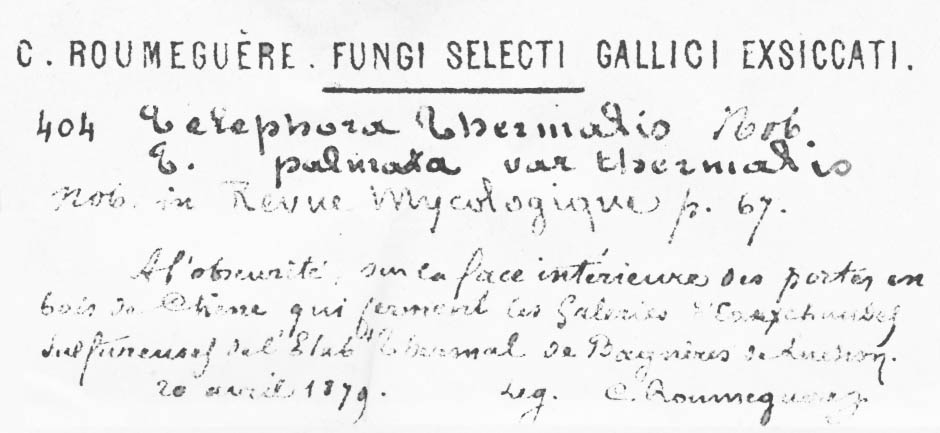 C. ROUMEGUÈRE. FUNGI SELECTI GALLICI EXSICCATI.
404 Telephora thermalis Nob
T. palmata var thermalis
Nob. in Revue Mycologique p. 67.
A l'obscurité, sur la face intérieure des portes en
bois de Chêne qui ferment les Galeries d'Eaux chaudes
sulfureuses de l'Etabt Thermal de Bagnères de Luchon.
20 avril 1879. Leg. C. Roumeguère